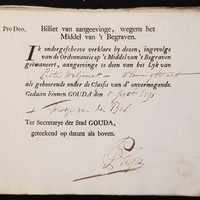 Pro Deo,
Billiet van aangeevinge, wegens het
Middel van 't Begraven.
IK ondergeschreve verklare by dezen, ingevolge
van de Ordonnantie op 't Middel van 't Begraven
geëmaneert, aangeevinge te doen van het Lyk van
Pieter
als gehoorende onder de Classis van d' onvermogende.
Gedaan binnen GOUDA den 5 Sept
van den Bos
Ter Secretarye der Stad GOUDA,
geteekend op datum als boven.